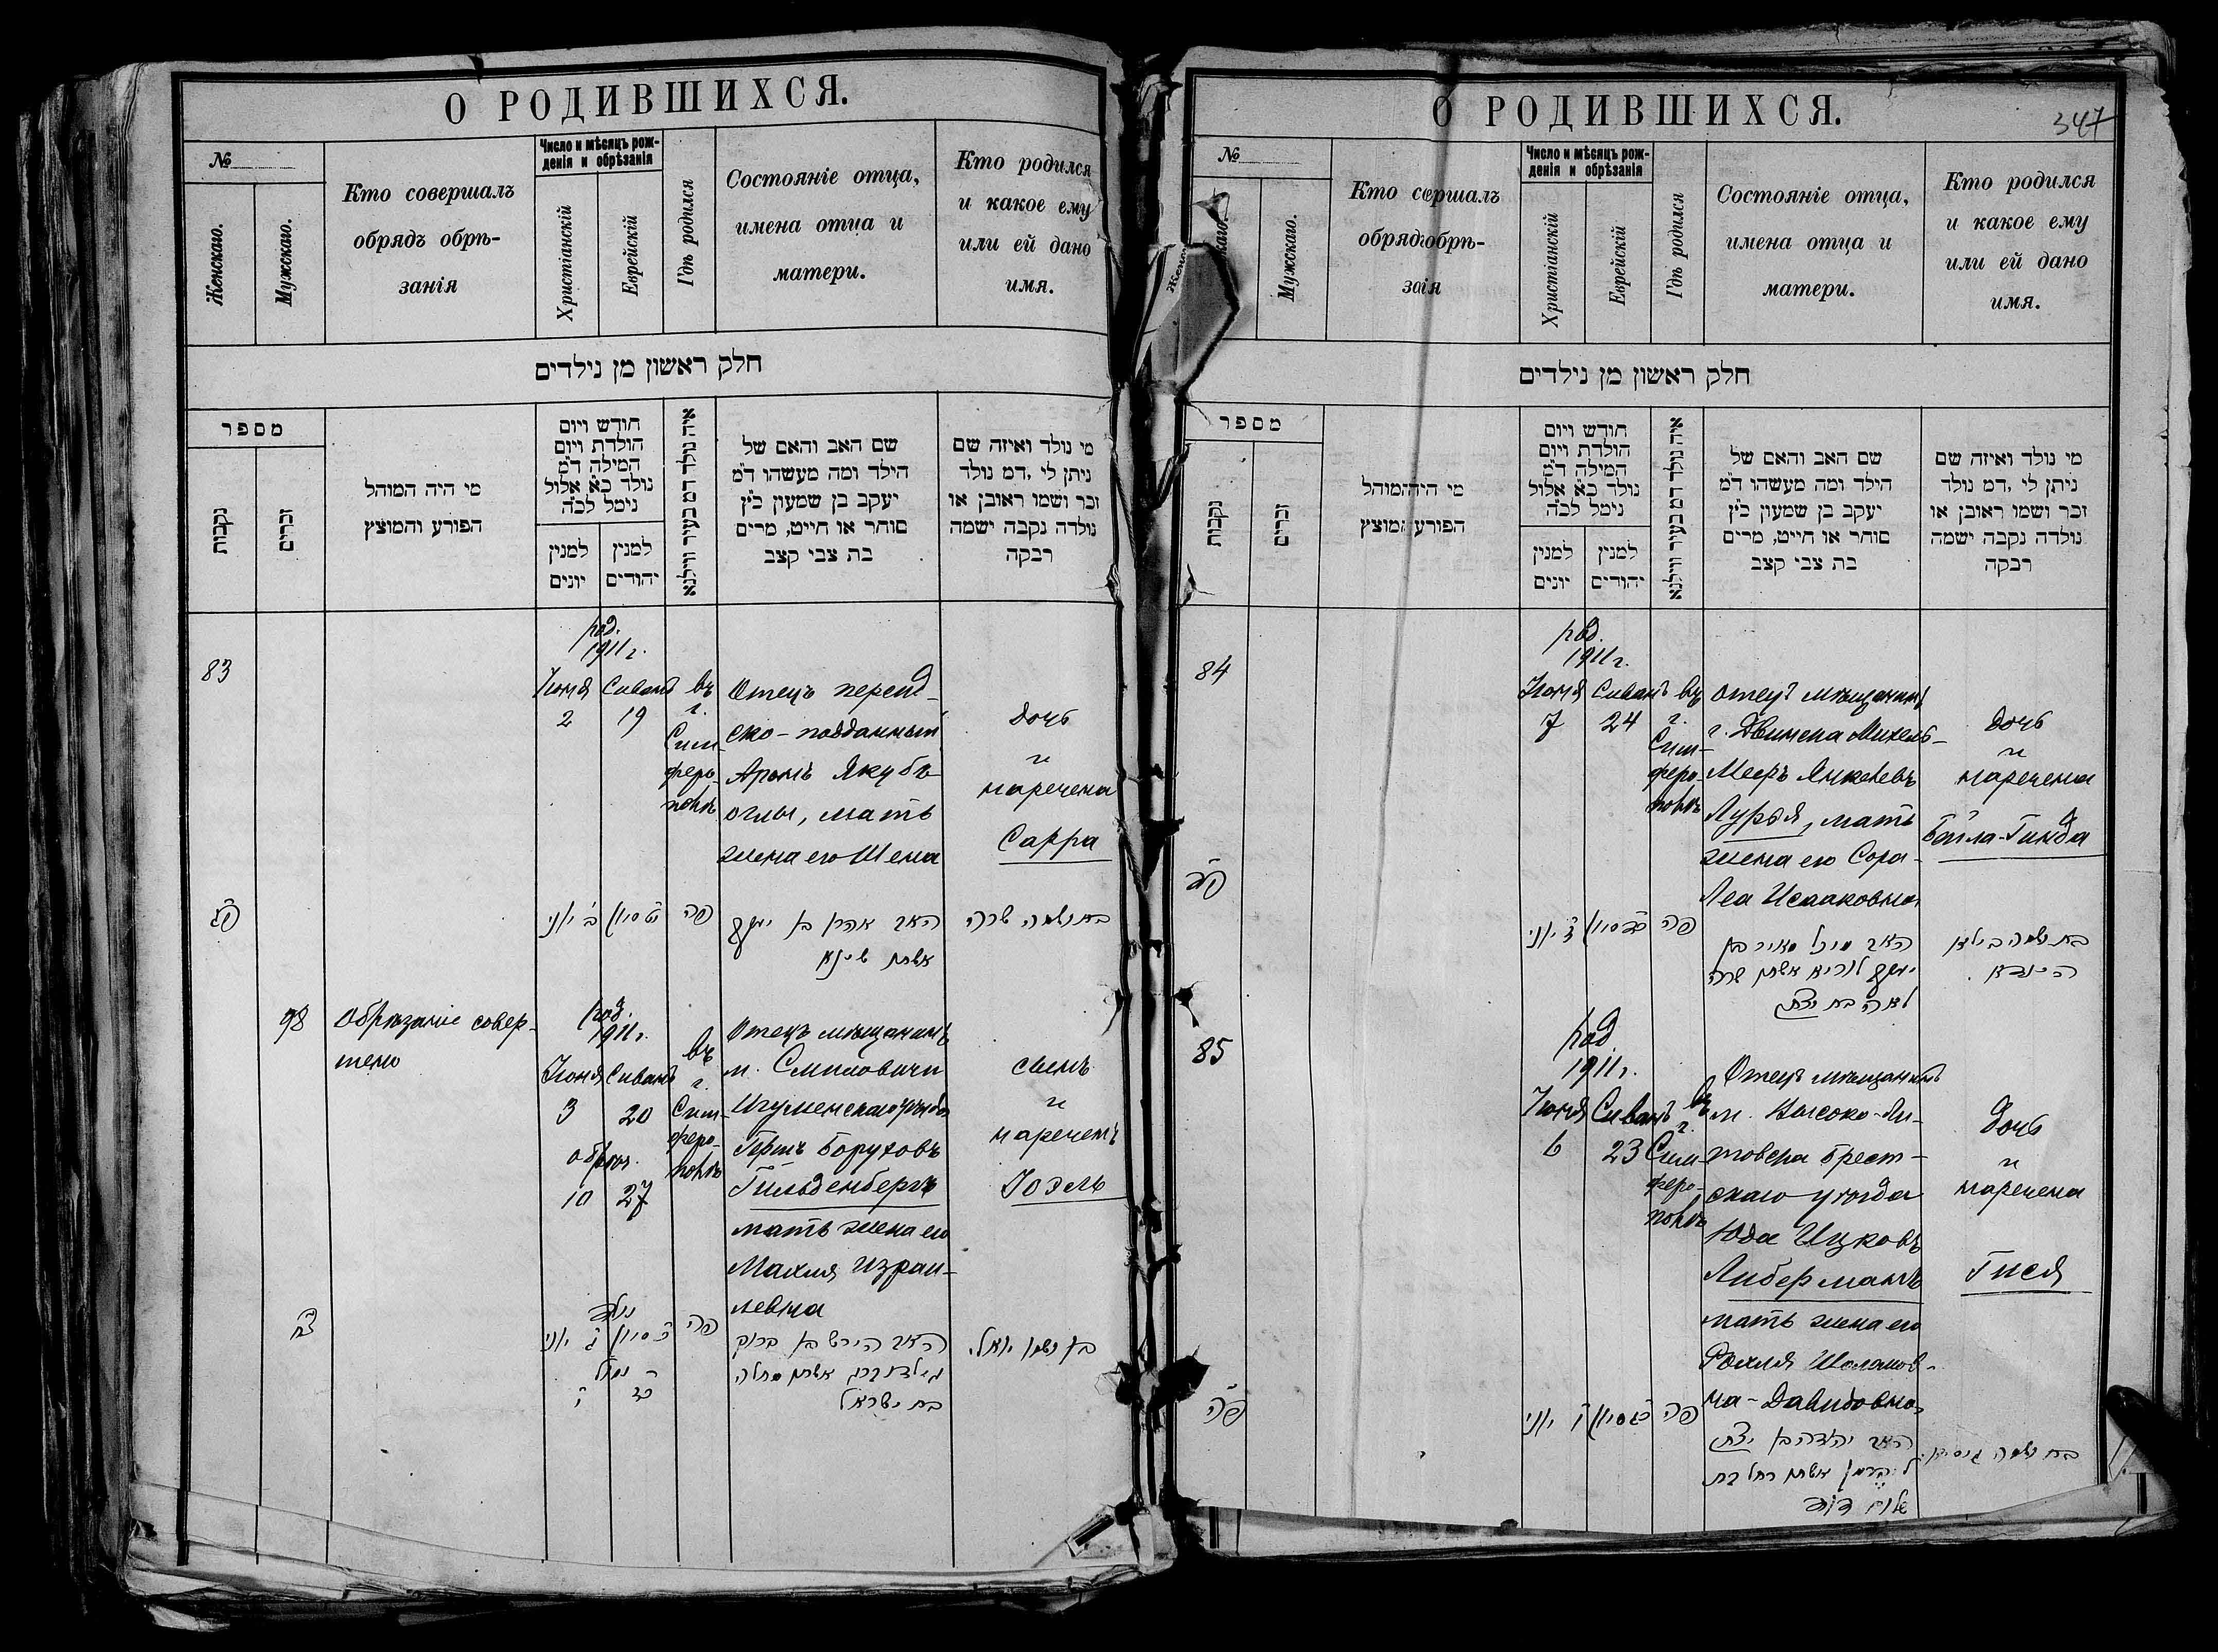 О РОДИВШИХСЯ.
№
Женскаго.
Мужскаго.
Кто совершалъ
обрядъ обрѣ-
занія
Число и мѣсяцъ рож-
денія и обрѣзанія
Христіанскій
Еврейскій
Гдѣ родился
Состояніе отца,
имена отца и
матери.
Кто родился
и какое ему
или ей дано
имя.
חלק ראשון מן נילדים
מספר
נקבות
זכרים
מי היה המוהל
הפורע והמוצץ
חודש ויום
הולדת ויום
המילה ד״מ
נולד כ״א אלול
נימל לכ״ה
למנין
יונים
למנין
יהודים
איה נולד דמ בעיר ווילנא
שם האב והאם של
הילד ומה מעשהו ד״מ
יעקב בן שמעון כ״ץ
סוחר או חייט, מרים
בת צבי קצב
מי נולד ואיזה שם
ניתן לי ,דמ נולד
זכר ושמו ראובן או
נולדה נקבה ישמה
רבקה
83
род.
1911 г.
Іюня Сиванъ
2 19
въ
г.
Сим-
феро-
полѣ
Отецъ персид-
ско-подданный
Аронъ Якубъ-
оглы, мать
жена его Шена
дочь
и
наречена
Сарра
פג
ב׳ יוני
י״ט סיון
פה
האב אהרן בן יעקב
אשתו שיינא
בת ושמה שרה
98
Обрѣзаніе совер-
шено
род.
1911 г.
Іюня Сиванъ
3 20
обрѣз.
10 27
въ
г.
Сим-
феро-
полѣ
Отецъ мѣщанинъ
м. Смиловичи
Игуменскаго уѣзда
Гершъ Боруховъ
Гильденбергъ
мать жена его
Махля Израи-
левна
сынъ
и
нареченъ
Іоэль
צח
נולד
ג׳ יוני
כ׳ סיון
נימול
י׳
כז
פה
האב הירש בן ברוך
גילדנברג אשתו מחלה
בת ישראל
בן ושמו יואל.
О РОДИВШИХСЯ.
347
№
Мужскаго.
Кто сершалъ
обрядобрѣ-
заія
Число и мѣсяцъ рож-
денія и обрѣзанія
Христіанскій
Еврейскій
Гдѣ родился
Состояніе отца,
имена отца и
матери.
Кто родился
и какое ему
или ей дано
имя.
חלק ראשון מן נילדים
מספר
נקבות
זכרים
מי היה המוהל
הפורע והמוצץ
חודש ויום
הולדת ויום
המילה ד״מ
נולד כ״א אלול
נימל לכ״ה
למנין
יונים
למנין
יהודים
איה נולד דמ בעיר ווילנא
שם האב והאם של
הילד ומה מעשהו ד״מ
יעקב בן שמעון כ״ץ
סוחר או חייט, מרים
בת צבי קצב
מי נולד ואיזה שם
ניתן לי ,דמ נולד
זכר ושמו ראובן או
נולדה נקבה ישמה
רבקה
84
род.
1911 г.
Іюня Сиванъ
7 24
въ
г.
Сим-
феро-
полѣ
Отецъ мѣщанинъ
г. Двинска Михель-
Мееръ Янкелевъ
Лурья, мать
жена его Сора-
Леа Исааковна
дочь
и
наречена
Бейла-Гинда
פד
ז׳ יוני
כד סיון
פה
האב מיכל מאיר בן
יעקב לוריא אשתו שרה
לאה בת יצחק
בת ושמה ביילא
הינדא.
85
род.
1911 г.
Іюня Сиванъ
6 23
въ
г.
Сим-
феро-
полѣ
Отецъ мѣщанинъ
м. Высоко-Ли-
товска Брест-
скаго уѣзда
Юда Ицковъ
Либерманъ
мать жена его
Рохля Шоломов-
на-Давидовна
дочь
и
наречена
Гися
פה
ו׳ יוני
כג סיון
פה
האב יהודה בן יצחק
ליברמן אשתו רחל בת
שלום דוד
בת ושמה גיסיא.